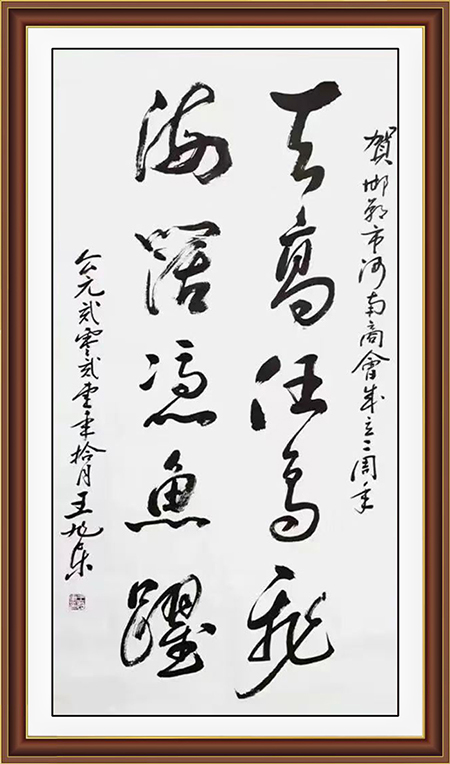 賀邯鄲市河南商會成立二周年
天高任鸟飞
海阔憑魚躍
公元贰零贰零年拾月王旭东